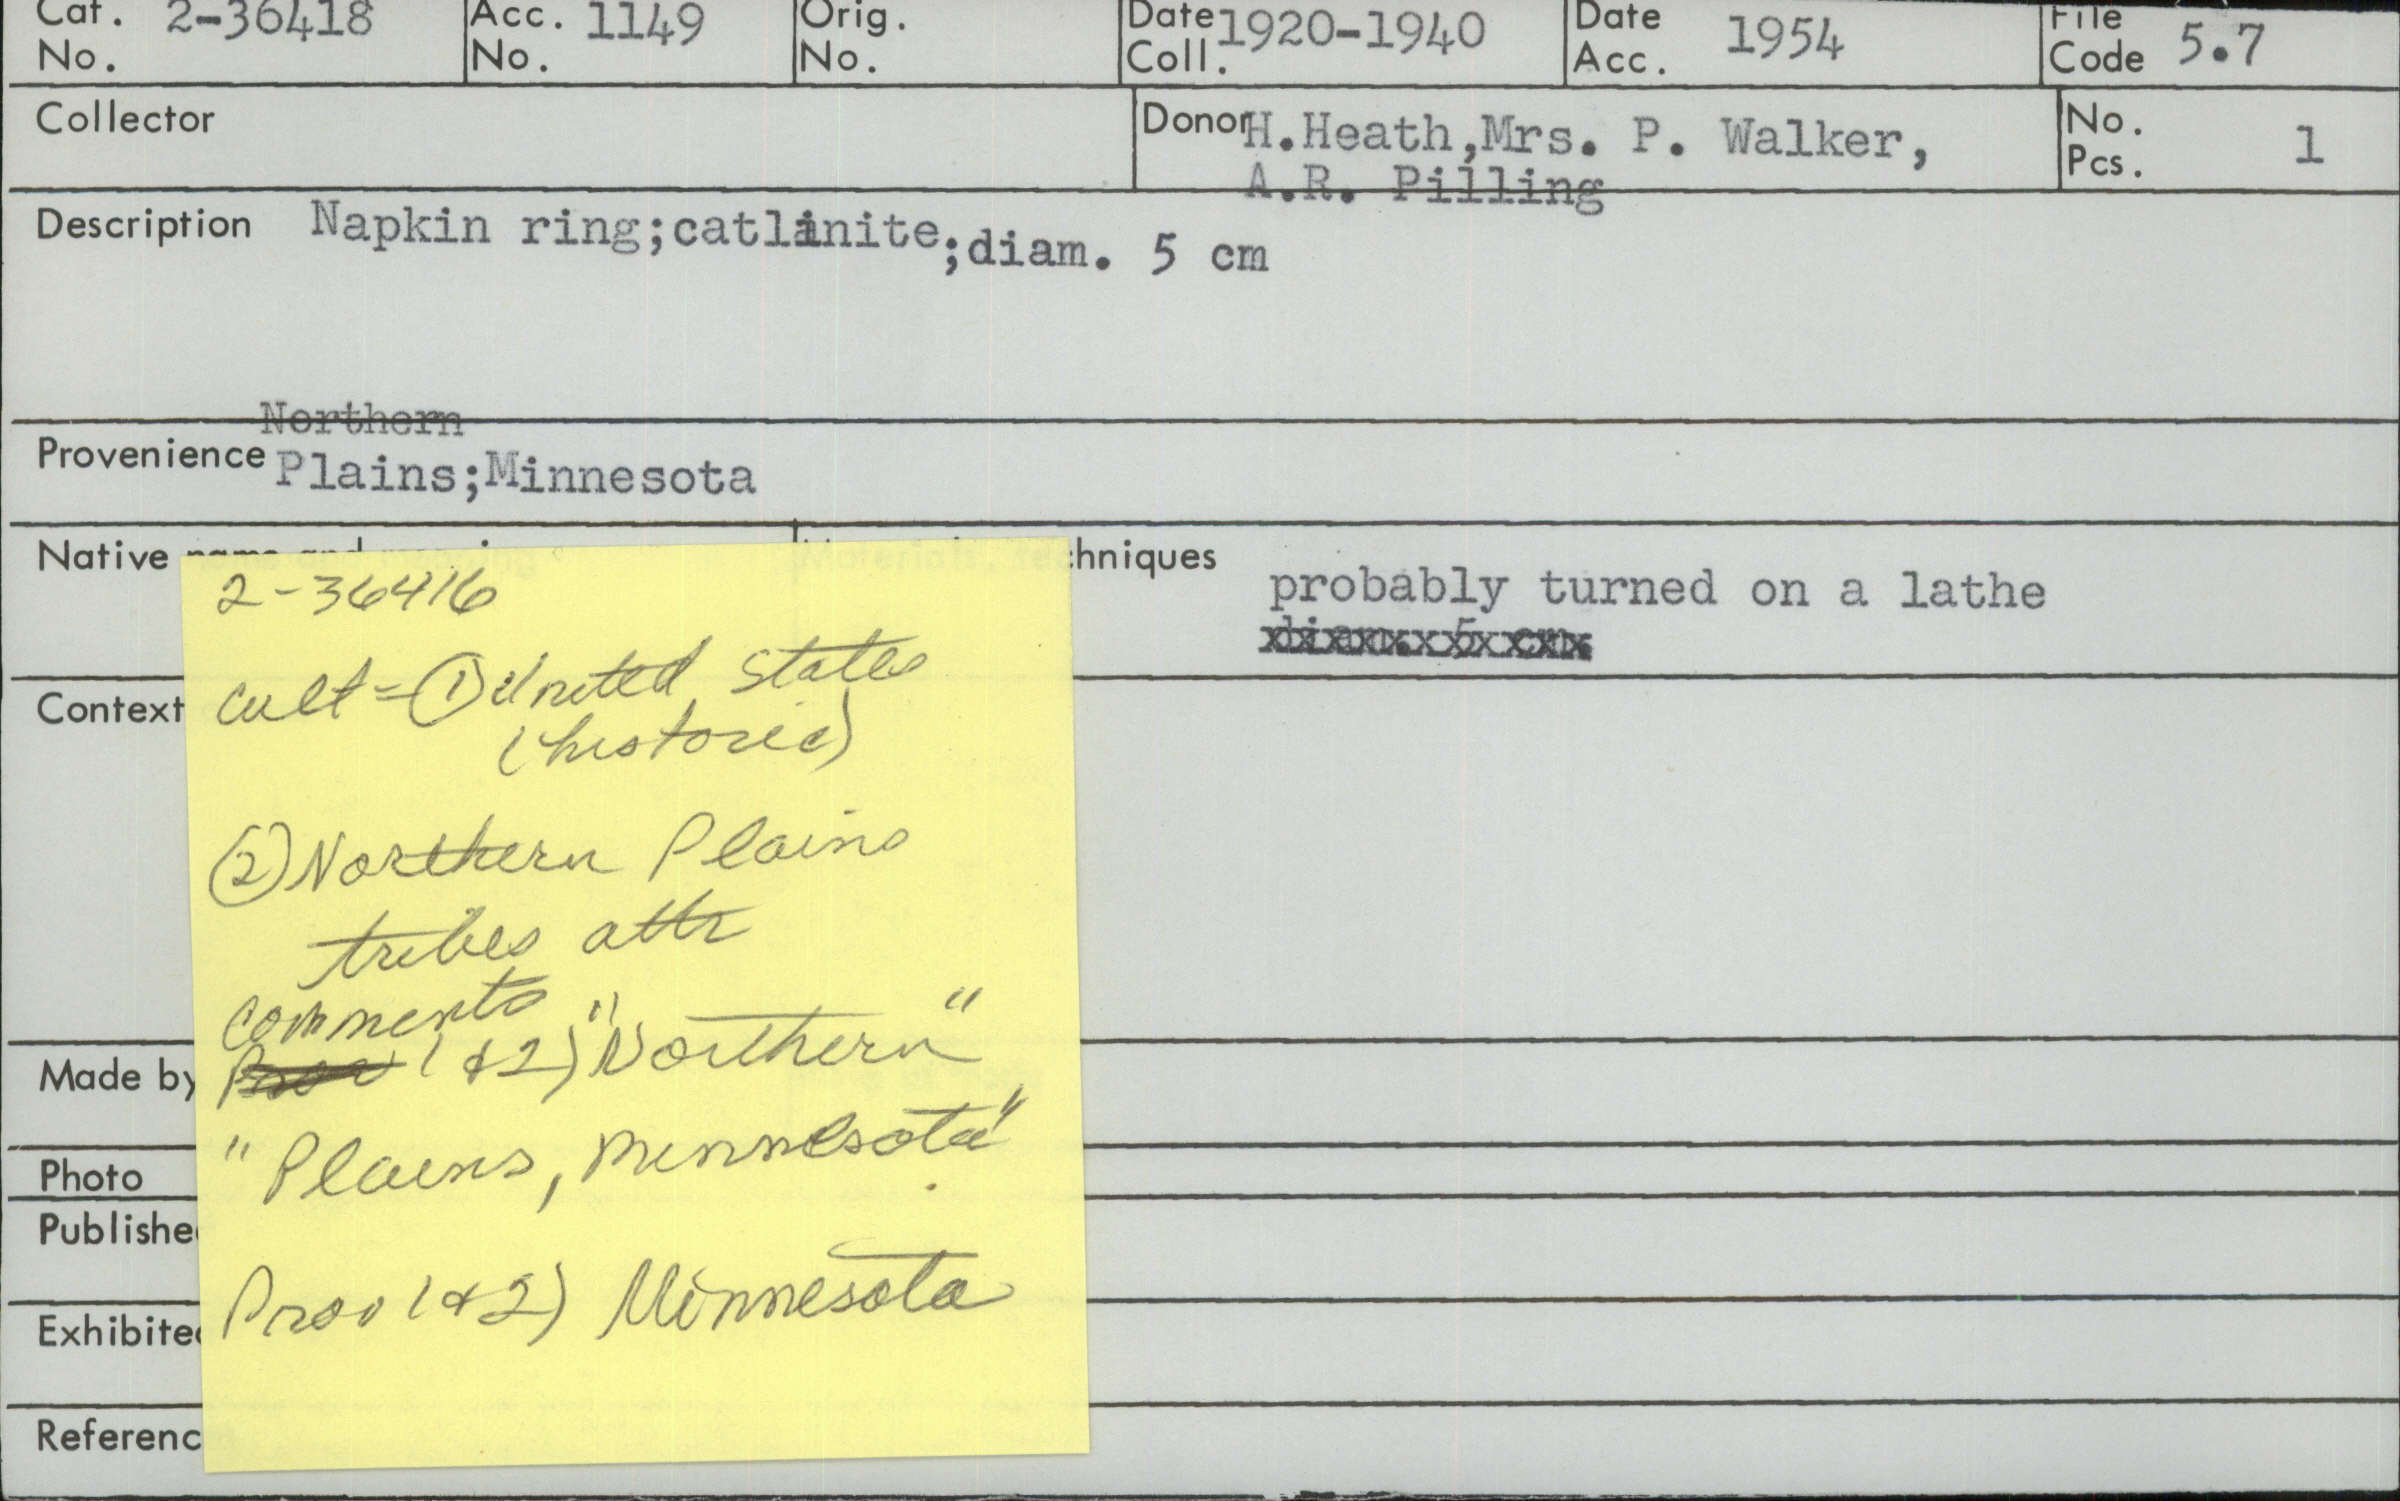 Cat. No. 2-36418 Acc. No. 1149 Orig. No. Date Coll. 1920-1940 Date Acc. 1954 File Code 5.7
Collector Donor H.Heath,Mrs. P. Walker, No. Pcs. 1
A.R. Pilling
Description Napkin ring;catlinite;diam. 5 cm
Northern
Provenience Plains;Minnesota
Native name and meaning Materials, techniques probably turned on a lathe
diam. 5 cm.
Context
Made by
Photo
Publishe
Exhibite
Referenc
2-36416
cult = ① United States
(historic)
② Northern Plains
tribes attr
comments
Prov 1 & 2) "Northern"
"Plains, Minnesota"
Prov 1 & 2) Minnesota